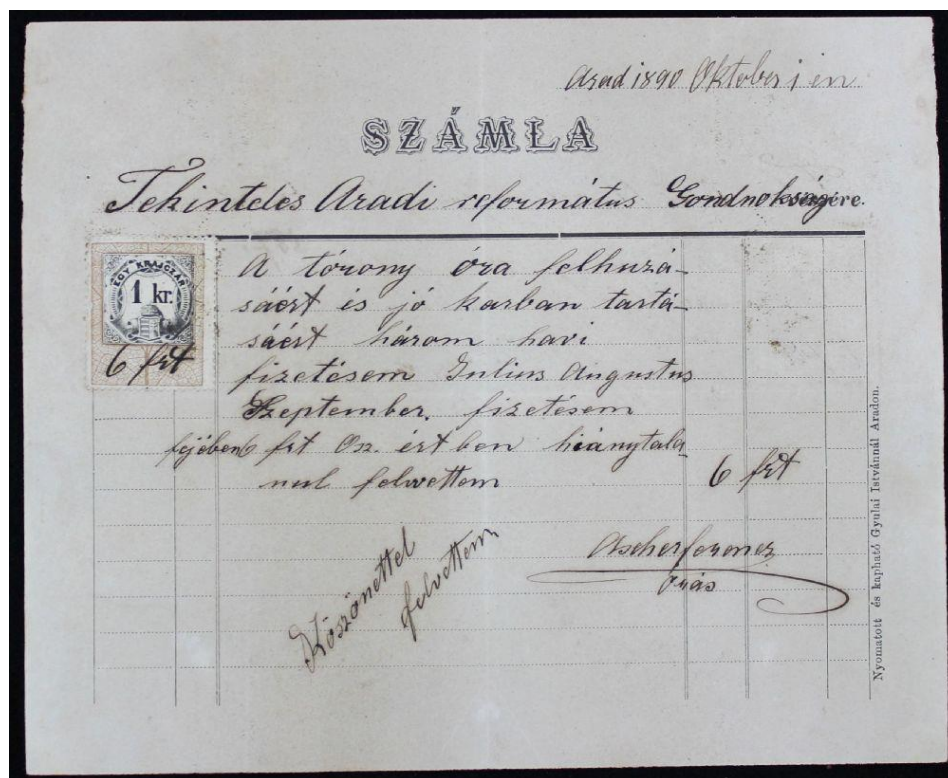 Arad 1890 Oktober 1 én
SZÁMLA
Tekintetes Aradi református Gondnokságére.
EGY KRAJCZÁR
1 kr.
6 frt
A torony óra felhuzá-
sáért és jó karban tartá-
sáért három havi
fizetésem Julius Augustus
Szeptember. fizetésem
fejében 6 frt Osz. értben hiánytala-
nul felvettem 6 frt
Köszönettel
felvettem
Ascher ferencz
órás
Nyomatott és kapható Gyulai Istvánnál Aradon.